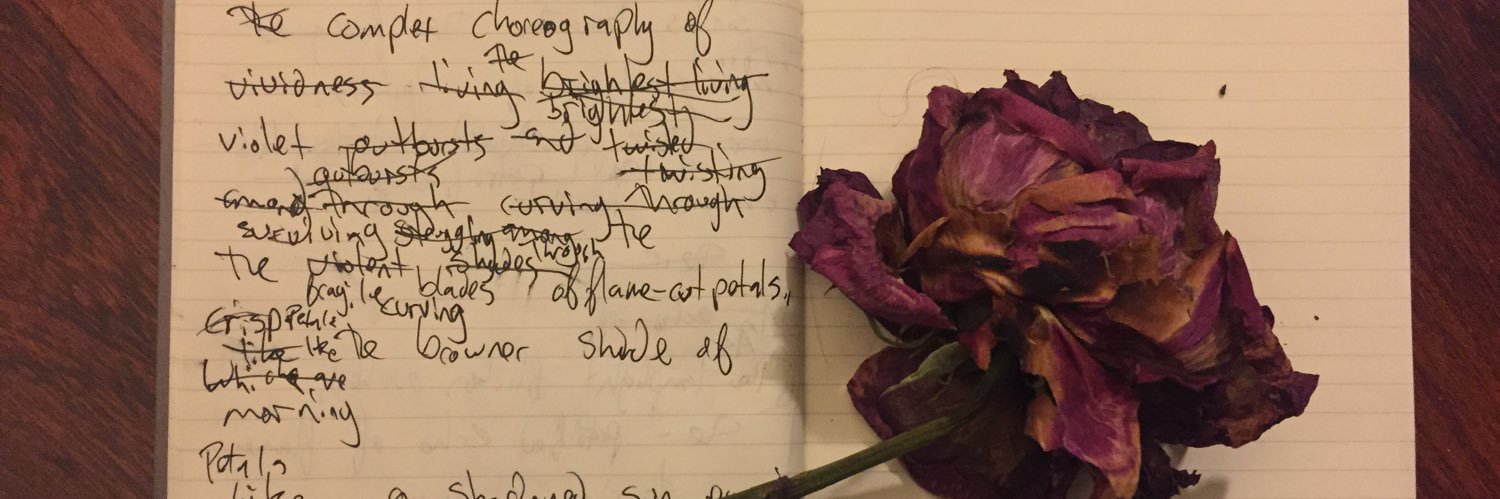 The complex choreography of
the
vividness living brightest living
brightest
violet outbursts and twisted
outbursts twisting
among through curving through
surviving among the
through
the violent shades
fragile blades of flame-cut petals,
crisp petals curving
like like the browner shade of
which are
morning
Petals
like a